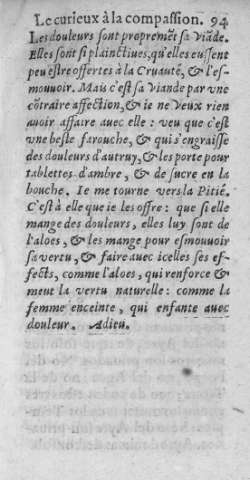 Le curieux à la compassion. 94
Les douleurs sont propremẽt sa Viãde.
Elles sont si plainctiues, qu'elles eussent
peu estre offertes à la Cruauté, & l'es-
mouuoir. Mais c'est sa Viande par vne
cõtraire affection, & ie ne Veux rien
auoir affaire auec elle : veu que c'est
vne beste farouche, & qui s'engraisse
des douleurs d'autruy, & les porte pour
tablettes d'ambre, & de sucre en la
bouche. Ie me tourne vers la Pitié.
C'est à elle que ie les offre : que si elle
mange des douleurs, elles luy sont de
l'aloes, & les mange pour esmouuoir
sa vertu, & faire auec icelles ses ef-
fects, comme l'aloes, qui renforce &
ment la vertu naturelle : comme la
femme enceinte, qui enfante auec
douleur. Adieu.